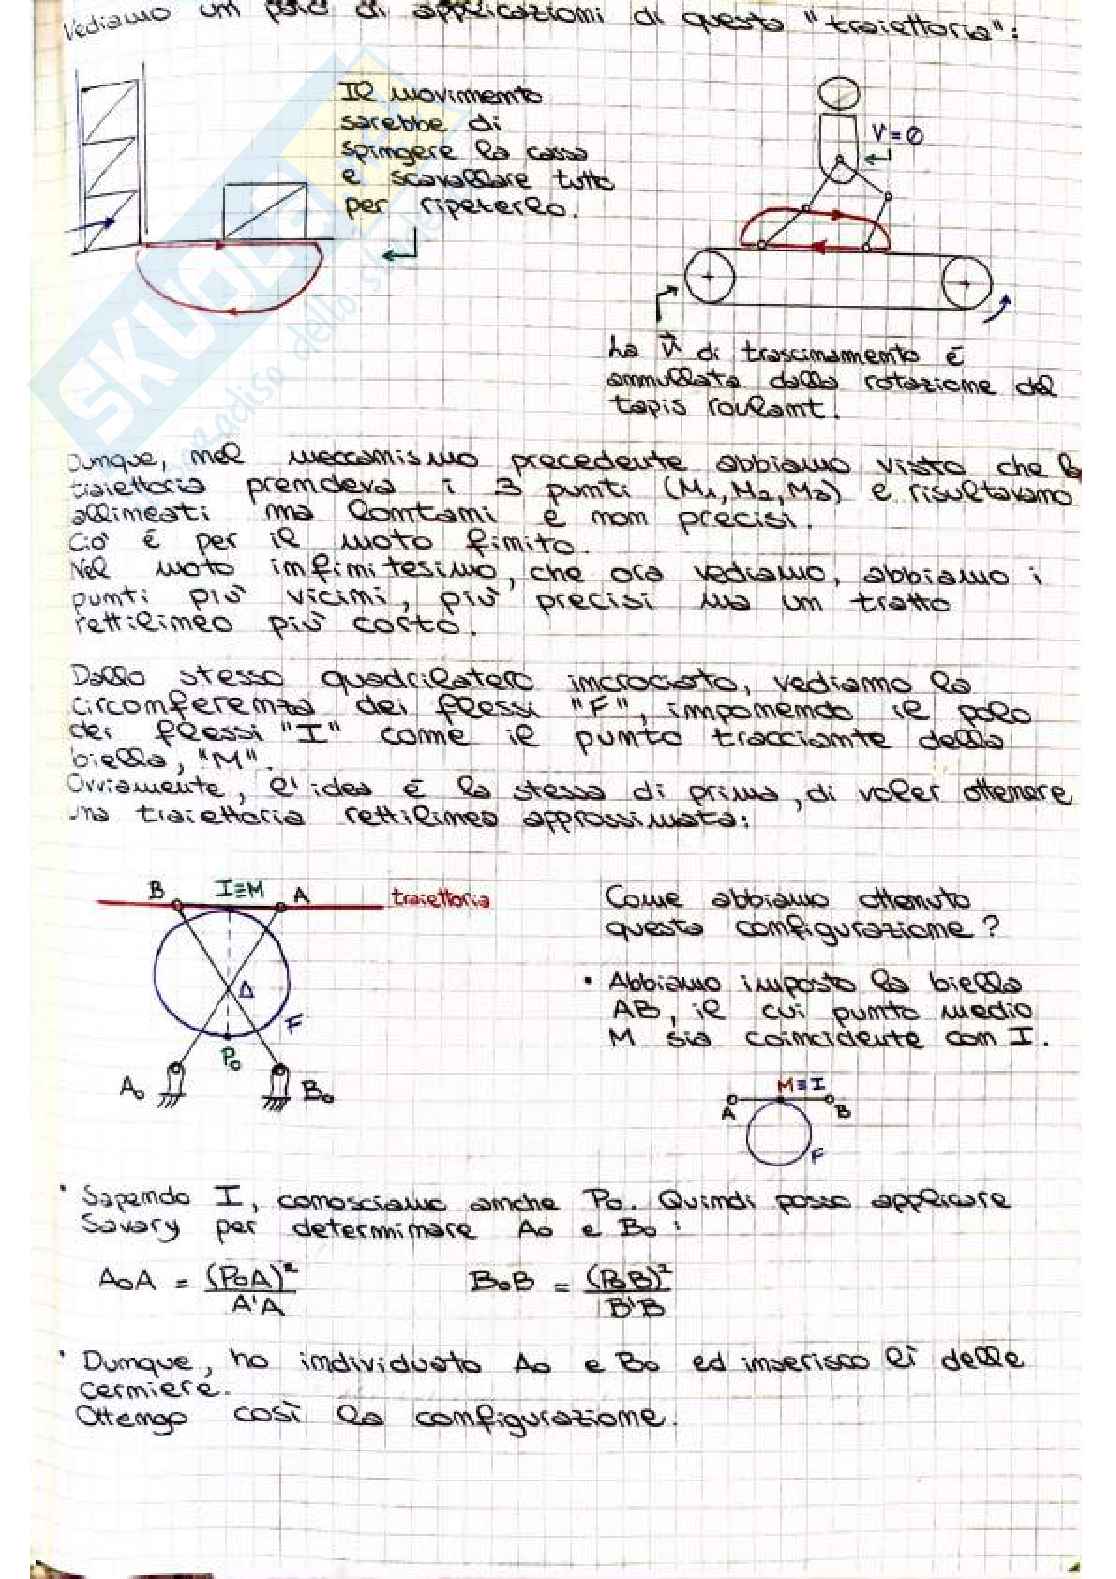 Vediamo un paio di applicazioni di questa "traiettoria":
Il movimento
sarebbe di
spingere la cassa
e scavallare tutto
per ripeterlo.
V = 0
La V di trascinamento é
annullata dalla rotazione del
tapis roulant.
Dunque, nel meccanismo precedente abbiamo visto che la
traiettoria prendeva i 3 punti (M1, M2, M3) e risultavano
allineati ma lontani e non precisi.
Ciò é per il moto finito.
Nel moto infinitesimo, che ora vediamo, abbiamo i
punti più vicini, più precisi ma un tratto
rettilineo più corto.
Dallo stesso quadrilatero incrociato, vediamo la
circonferenza dei flessi "F", imponendo il polo
dei flessi "I" come il punto tracciante della
biella, "M".
Ovviamente, l'idea é la stessa di prima, di voler ottenere
una traiettoria rettilinea approssimata:
B I≡M A traiettoria
Δ
F
P0
A0 B0
Come abbiamo ottenuto
questa configurazione?
• Abbiamo imposto la biella
AB, il cui punto medio
M sia coincidente con I.
M≡I
A B
F
• Sapendo I, conosciamo anche P0. Quindi posso applicare
Savary per determinare A0 e B0:
A0A = (P0A)² / A'A B0B = (P0B)² / B'B
• Dunque, ho individuato A0 e B0 ed inserisco lì delle
cerniere.
Ottengo così la configurazione.
SKUOLA